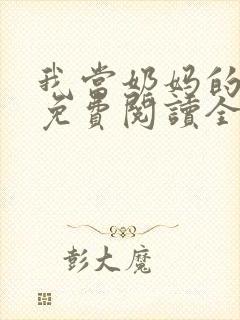 我當奶妈的
免費閱讀全
彭大魔